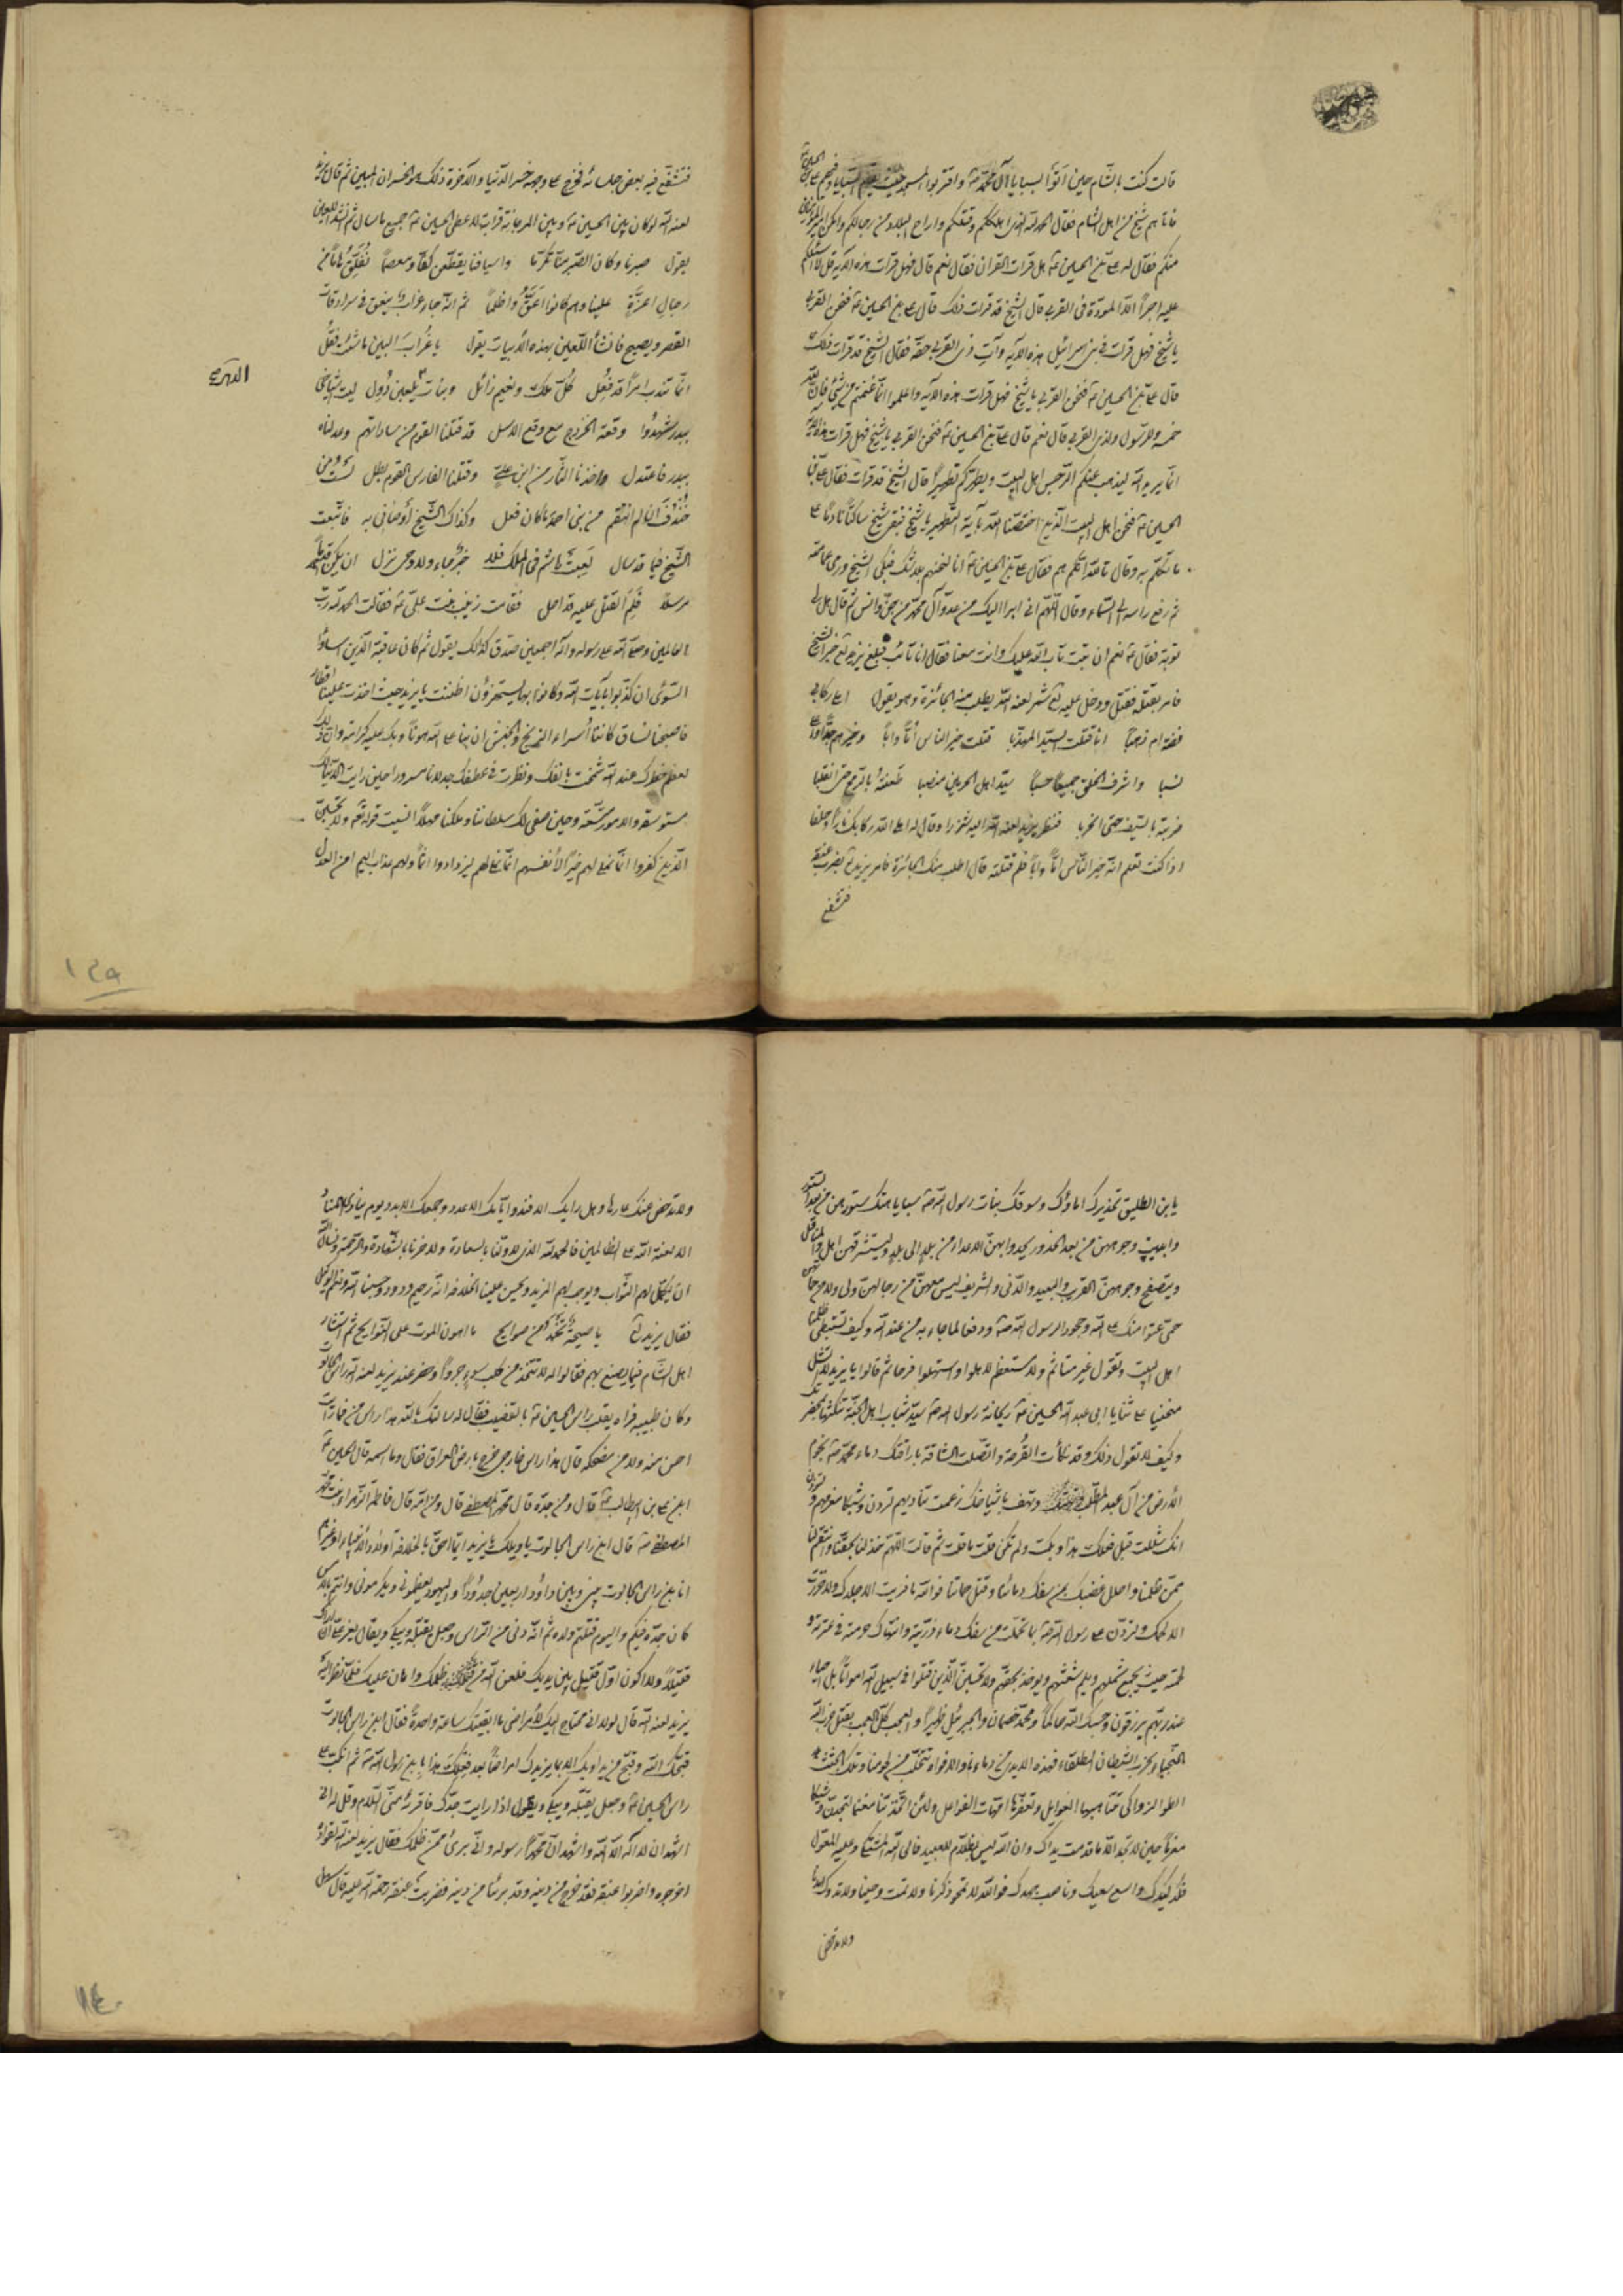 قالت كنت بالشام حين اتوا بسبايا آل محمد ص واقتربوا المسجد حيث السبايا وفيهم علي بن الحسين ع
فاتاهم شيخ من اهل الشام فقال الحمد لله الذي اهلككم وقتلكم واراح البلاد من رجالكم وامكن امير المؤمنين
منكم فقال له علي بن الحسين ع هل قرات القران فقال نعم قال فهل قرات هذه الآية قل لا اسئلكم
عليه اجرا الا المودة في القربى قال الشيخ قد قرات ذلك قال علي بن الحسين ع فنحن القربى
يا شيخ فهل قرات في بني اسرائيل هذه الآية وآت ذي القربى حقه فقال الشيخ قد قرات ذلك
قال علي بن الحسين ع فنحن القربى يا شيخ فهل قرات هذه الآية واعلموا انما غنمتم من شئ فان لله
خمسه وللرسول ولذي القربى قال نعم قال علي بن الحسين ع فنحن القربى يا شيخ فهل قرات هذه الآية
انما يريد الله ليذهب عنكم الرجس اهل البيت ويطهركم تطهيرا قال الشيخ قد قرات فقال علي بن
الحسين ع فنحن اهل البيت الذين اختصنا الله بآية التطهير يا شيخ فبقي شيخ ساكتا نادما على
ما تكلم به وقال تالله انكم هم فقال علي بن الحسين ع انا لنحن هم بلا شك فبكى الشيخ ورمى عمامته
ثم رفع راسه الى السماء وقال اللهم اني ابرا اليك من عدو آل محمد من جن وانس ثم قال هل لي
توبة فقال ع نعم ان تبت تاب الله عليك وانت معنا فقال انا تائب فبلغ يزيد لع خبر الشيخ
فامر بقتله فقتل ودخل عليه لع شمر لعنه الله يطلب منه الجائزة وهو يقول املا ركابي
فضة ام ذهبا انا قتلت السيد المهذبا قتلت خير الناس اما وابا وخيرهم جدا
نسبا واشرف الخلق جميعا حسبا سيد اهل الحرمين منصبا طعنته بالرمح حتى انقلبا
ضربته بالسيف حتى انخربا فنظر يزيد لعنه الله اليه شزرا وقال له املا الله ركابك نارا وحطبا
اذا كنت تعلم انه خير الناس اما وابا فلم قتلته قال اطلب منك الجائزة فامر يزيد لع بضرب عنقه
فتشفع
فتشفع فيه بعض جلسائه فخرج على وجهه خسر الدنيا والآخرة ذلك هو الخسران المبين ثم قال يزيد
لعنه الله لو كان بين الحسين ع وبين ابن المرجانة قرابة لاعطى الحسين ع جميع ما سال ثم انشد اللعين
يقول صبرنا وكان الصبر منا تكرما واسيافنا يقطعن كفا ومعصما نفلق هاما من
رجال اعزة علينا وهم كانوا اعق واظلما ثم انه جاء غراب ينعق في سرادقات
القصر ويصيح فانشا اللعين بهذه الابيات يقول يا غراب البين ما شئت فقل
انما تندب امرا قد فعل كل ملك ونعيم زائل وبنات يلعبن دول ليت اشياخي
ببدر شهدوا وقعة الخزرج مع وقع الاسل قد قتلنا القوم من ساداتهم وعدلناه
ببدر فاعتدل واخذنا الثار من ابن علي وقتلنا الفارس القوم بطل لست من
خندف ان لم انتقم من بني احمد ما كان فعل وكذاك الشيخ اوصاني به فاتبعت
الشيخ فيما قد سال لعبت هاشم في الملك فلا خبر جاء ولا وحي نزل ان يكن قدما
مرسلا فلم القتل عليه قد احل فقامت زينب بنت علي ع فقالت الحمد لله رب
العالمين وصلى الله على رسوله وآله اجمعين صدق كذلك يقول ثم كان عاقبة الذين اساؤا
السوئى ان كذبوا بآيات الله وكانوا بها يستهزؤن اظننت يا يزيد حيث اخذت علينا اقطار
فاصبحنا نساق كاننا اسراء الزنج والحبش ان بنا على الله هونا وبك عليه كرامة وان ذلك
لعظم خطرك عند الله شمخت بانفك ونظرت في عطفك جذلانا مسرورا حين رايت الدنيا لك
مستوسقة والامور متسقة وحين صفى لك سلطاننا وملكنا مهلا انسيت قوله تع ولا تحسبن
الذين كفروا انما نملي لهم خيرا لانفسهم انما نملي لهم ليزدادوا اثما ولهم عذاب اليم امن العدل
يابن الطليق تخديرك اماؤك وسوقك بنات رسول الله ص سبايا هتك ستورهن من بعد الستور
وابديت وجوههن من بعد الخدور يحدوا بهن الاعداء من بلد الى بلد ويستشرفهن اهل المناقل
ويتصفح وجوههن القريب والبعيد والدني والشريف ليس معهن من رجالهن ولي ولا من حماتهن
حمي عتوا منك على الله وجحودا لرسول الله ص ودفعا لما جاء به من عند الله وكيف تستبطي ظلمنا
اهل البيت وتقول غير متاثم ولا مستعظم لاهلوا واستهلوا فرحا ثم قالوا يا يزيد لا تشل
منحنيا على ثنايا ابي عبد الله الحسين ع ريحانة رسول الله ص سيد شباب اهل الجنة تنكثها بمخصرتك
وكيف لا تقول ذلك وقد نكات القرحة واتصلت الشافة باراقتك دماء محمد ص ونجوم
الارض من آل عبد المطلب وتهتف باشياخك زعمت تناديهم لتردن وشيكا موردهم ولتودن
انك شللت قبل فعلك هذا وبكمت ولم تكن قلت ما قلت ثم قالت اللهم خذ لنا بحقنا وانتقم لنا
ممن ظلمنا واحلل غضبك بمن سفك دمائنا وقتل حماتنا فوالله ما فريت الا جلدك ولا حززت
الا لحمك ولتردن على رسول الله ص بما تحملت من سفك دماء ذريته وانتهاك حرمته في عترته و
لحمته حيث يجمع شملهم ويلم شعثهم ويؤخذ بحقهم ولا تحسبن الذين قتلوا في سبيل الله امواتا بل احياء
عند ربهم يرزقون وحسبك الله حاكما ومحمد ص خصما والجبرئيل ظهيرا والعجب كل العجب بقتل حزب الله
النجباء بحزب الشيطان الطلقاء فهذه الايدي من دماءنا والافواه تتحلب من لحومنا وتلك الجثث
الطواهر الزواكي تنتابها العواسل وتعفرها امهات الفواعل ولئن اتخذتنا مغنما لتجدن وشيكا
مغرما حين لا تجد الا ما قدمت يداك وان الله ليس بظلام للعبيد فالى الله المشتكى وعليه المعول
فكد كيدك واسع سعيك وناصب جهدك فوالله لا تمحو ذكرنا ولا تمت وحينا ولا تدرك امدنا
ولا ترحض
ولا ترحض عنك عارها وهل رايك الا فند وايامك الا عدد وجمعك الا بدد يوم يناد المناد
الا لعنة الله على الظالمين فالحمد لله الذي لاولنا بالسعادة ولآخرنا بالشهادة والرحمة ونسال الله
ان يكمل لهم الثواب ويوجب لهم المزيد ويحسن علينا الخلافة انه رحيم ودود وحسبنا الله ونعم الوكيل
فقال يزيد لع يا صيحة تحمد من صوايح ما اهون الموت على النوايح ثم استشار
اهل الشام فيما يصنع بهم فقالوا له لا تتخذ من كلب سوء جروا وحضر عند يزيد لعنه الله راس الجالوت
وكان طبيبه فراه يقلب راس الحسين ع بالقضيب فقال له سالتك بالله هذا راس من فما رايت
احسن منه ولا من مضحكه قال هذا راس خارجي خرج بارض العراق فقال وما اسمه قال الحسين ع
ابن علي بن ابيطالب ع قال ومن جده قال محمد المصطفى قال ومن امه قال فاطمة الزهراء بنت محمد
المصطفى ص قال ابن راس الجالوت يا ويلك يا يزيد ايما احق بالخلافة اولاد الانبياء او غيرهم
انا ابن راس الجالوت بيني وبين داؤد اربعين جدودا واليهود يعظموني ويكرموني وانتم بالامس
كان جده فيكم واليوم قتلتم ولده ثم انه دنى من الراس وجعل يقبله ويبكي ويقال يعز علي ان اراك
قتيلا ولا اكون اول قتيل بين يديك فلعن الله من قتلك وظلمك واعان عليك فلما نظر اليه
يزيد لعنه الله قال لولا اني محتاج اليك لامراضي ما ابقيتك ساعة واحدة فقال ابن راس الجالوت
قبحك الله وقبح من يداويك الا بما يزيدك امراضا بعد فعلك هذا بابن رسول الله ص ثم انكب على
راس الحسين ع وجعل يقبله ويبكي ويقول اذا رايت جدك فاقرئه مني السلام وقل له اني
اشهد ان لا اله الا الله واشهد ان محمدا رسوله واني برئ ممن ظلمك فقال يزيد لعنه الله لقواده
اخرجوه واضربوا عنقه فقد خرج من دينه وقد برئنا من دينه فضربت عنقه رحمة الله عليه قال سهل
١٣٩
١٤٠